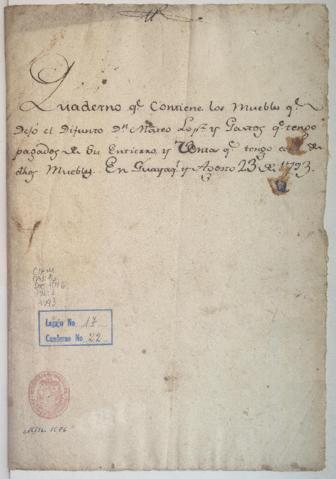 Quaderno qe Contiene los Muebles qe
dejó el Difunto Dn Mateo Lopz. y Gastos qe tengo
pagados de su Entierro, y Venta qe tengo de
dhos Muebles. En Guayaql y Agosto 23 de 1793.
1793
Legajo No 17
Cuaderno No 22